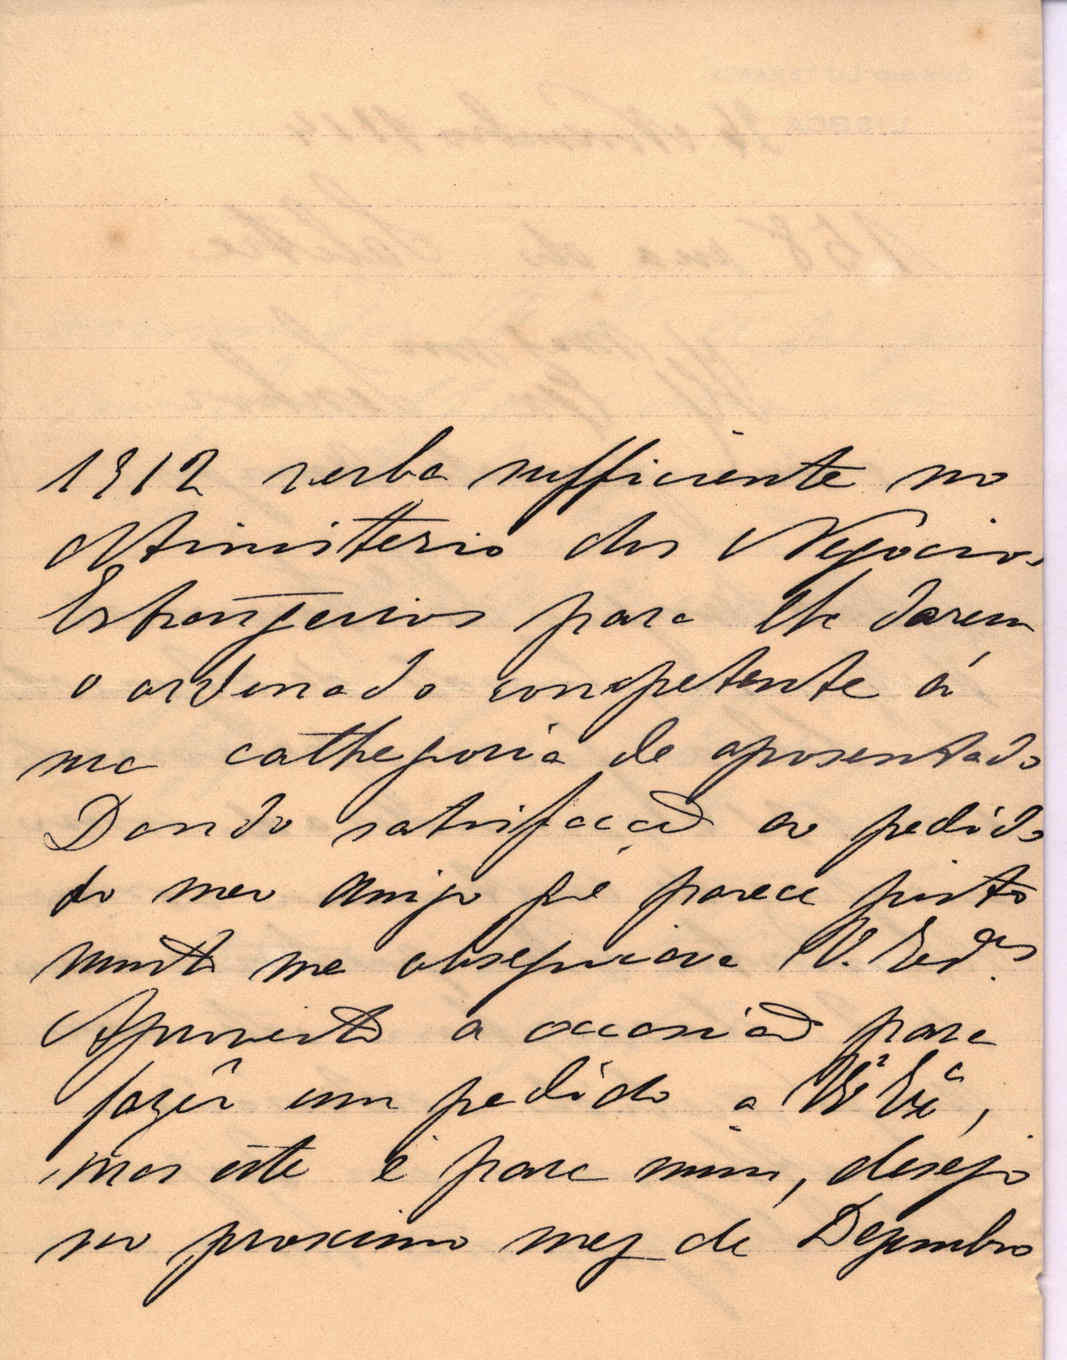 1912 verba sufficiente no
Ministerio dos Negocios
Estrangeiros para lhe darem
o ordenado competente á
sua cathegoria de aposentado
Dando satisfacção ao pedido
do meu amigo que parece justo
muito me obsequiava V. Ex.as
Aproveito a occasião para
fazêr um pedido a V. Exa,
mas este é para mim, desejo
no proximo mez de Dezembro